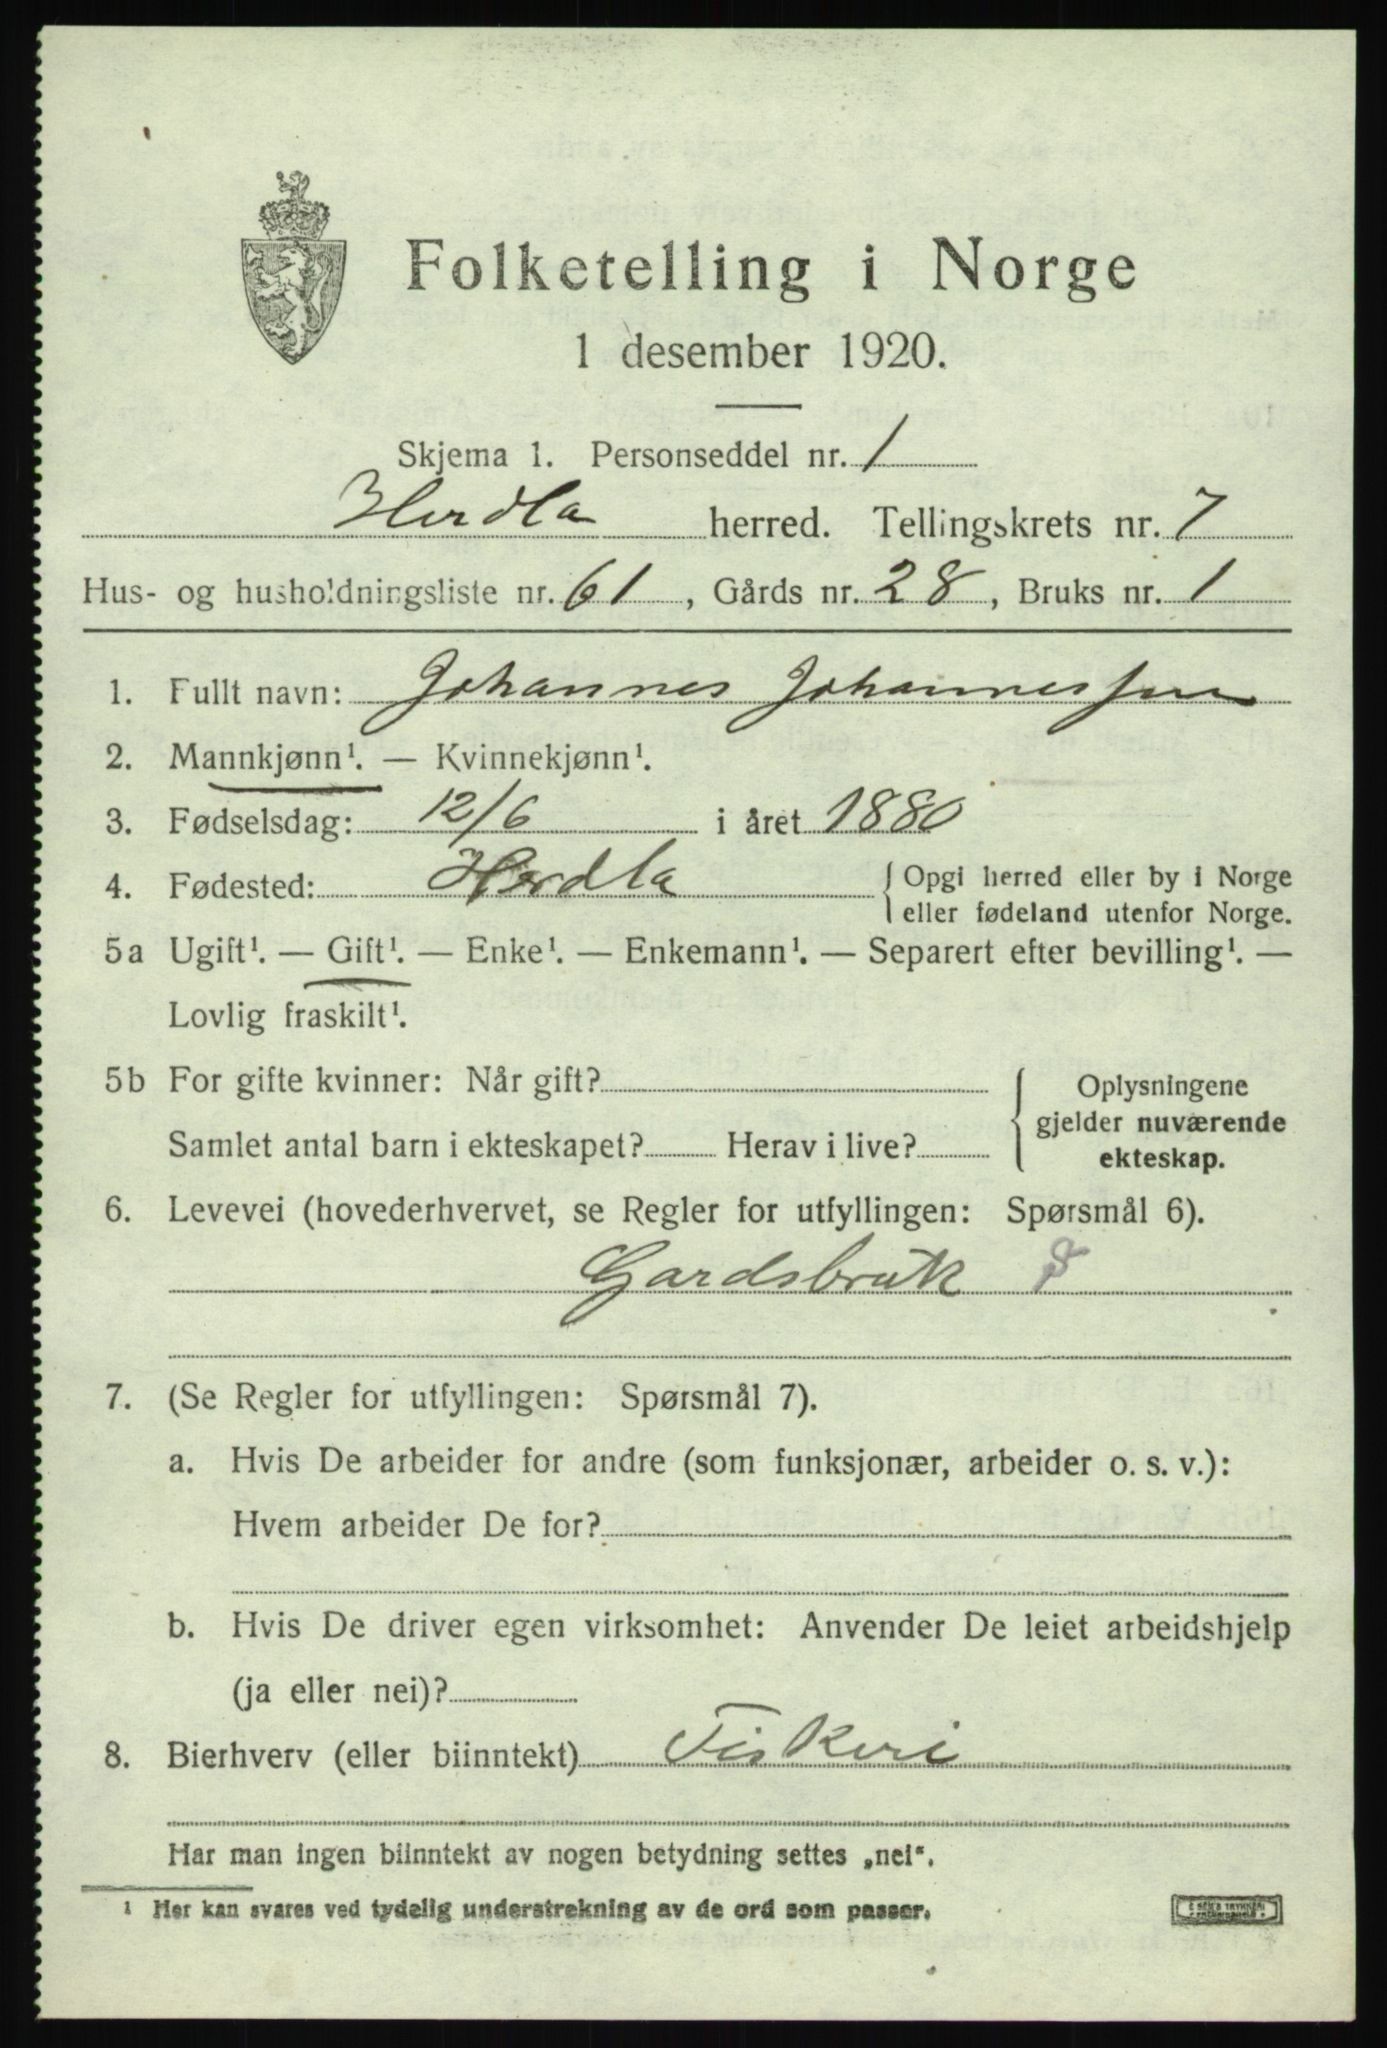 Folketelling i Norge
1 desember 1920.
Skjema 1. Personseddel nr. 1
Herdla herred. Tellingskrets nr. 7
Hus- og husholdningsliste nr. 61, Gårds nr. 28, Bruks nr. 1
1. Fullt navn: Johannes Johannessen
2. Mannkjønn¹. — Kvinnekjønn¹.
3. Fødselsdag: 12/6 i året 1880
4. Fødested: Herdla { Opgi herred eller by i Norge
eller fødeland utenfor Norge.
5a Ugift¹. — Gift¹. — Enke¹. — Enkemann¹. — Separert efter bevilling¹. —
Lovlig fraskilt¹.
5b For gifte kvinner: Når gift?
Samlet antal barn i ekteskapet? Herav i live?
Oplysningene
gjelder nuværende
ekteskap.
6. Levevei (hovederhvervet, se Regler for utfyllingen: Spørsmål 6).
Gardsbruk
7. (Se Regler for utfyllingen: Spørsmål 7).
a. Hvis De arbeider for andre (som funksjonær, arbeider o. s. v.):
Hvem arbeider De for?
b. Hvis De driver egen virksomhet: Anvender De leiet arbeidshjelp
(ja eller nei)?
8. Bierhverv (eller biinntekt) Fiskeri
Har man ingen biinntekt av nogen betydning settes „nei“.
¹ Her kan svares ved tydelig understrekning av de ord som passer.